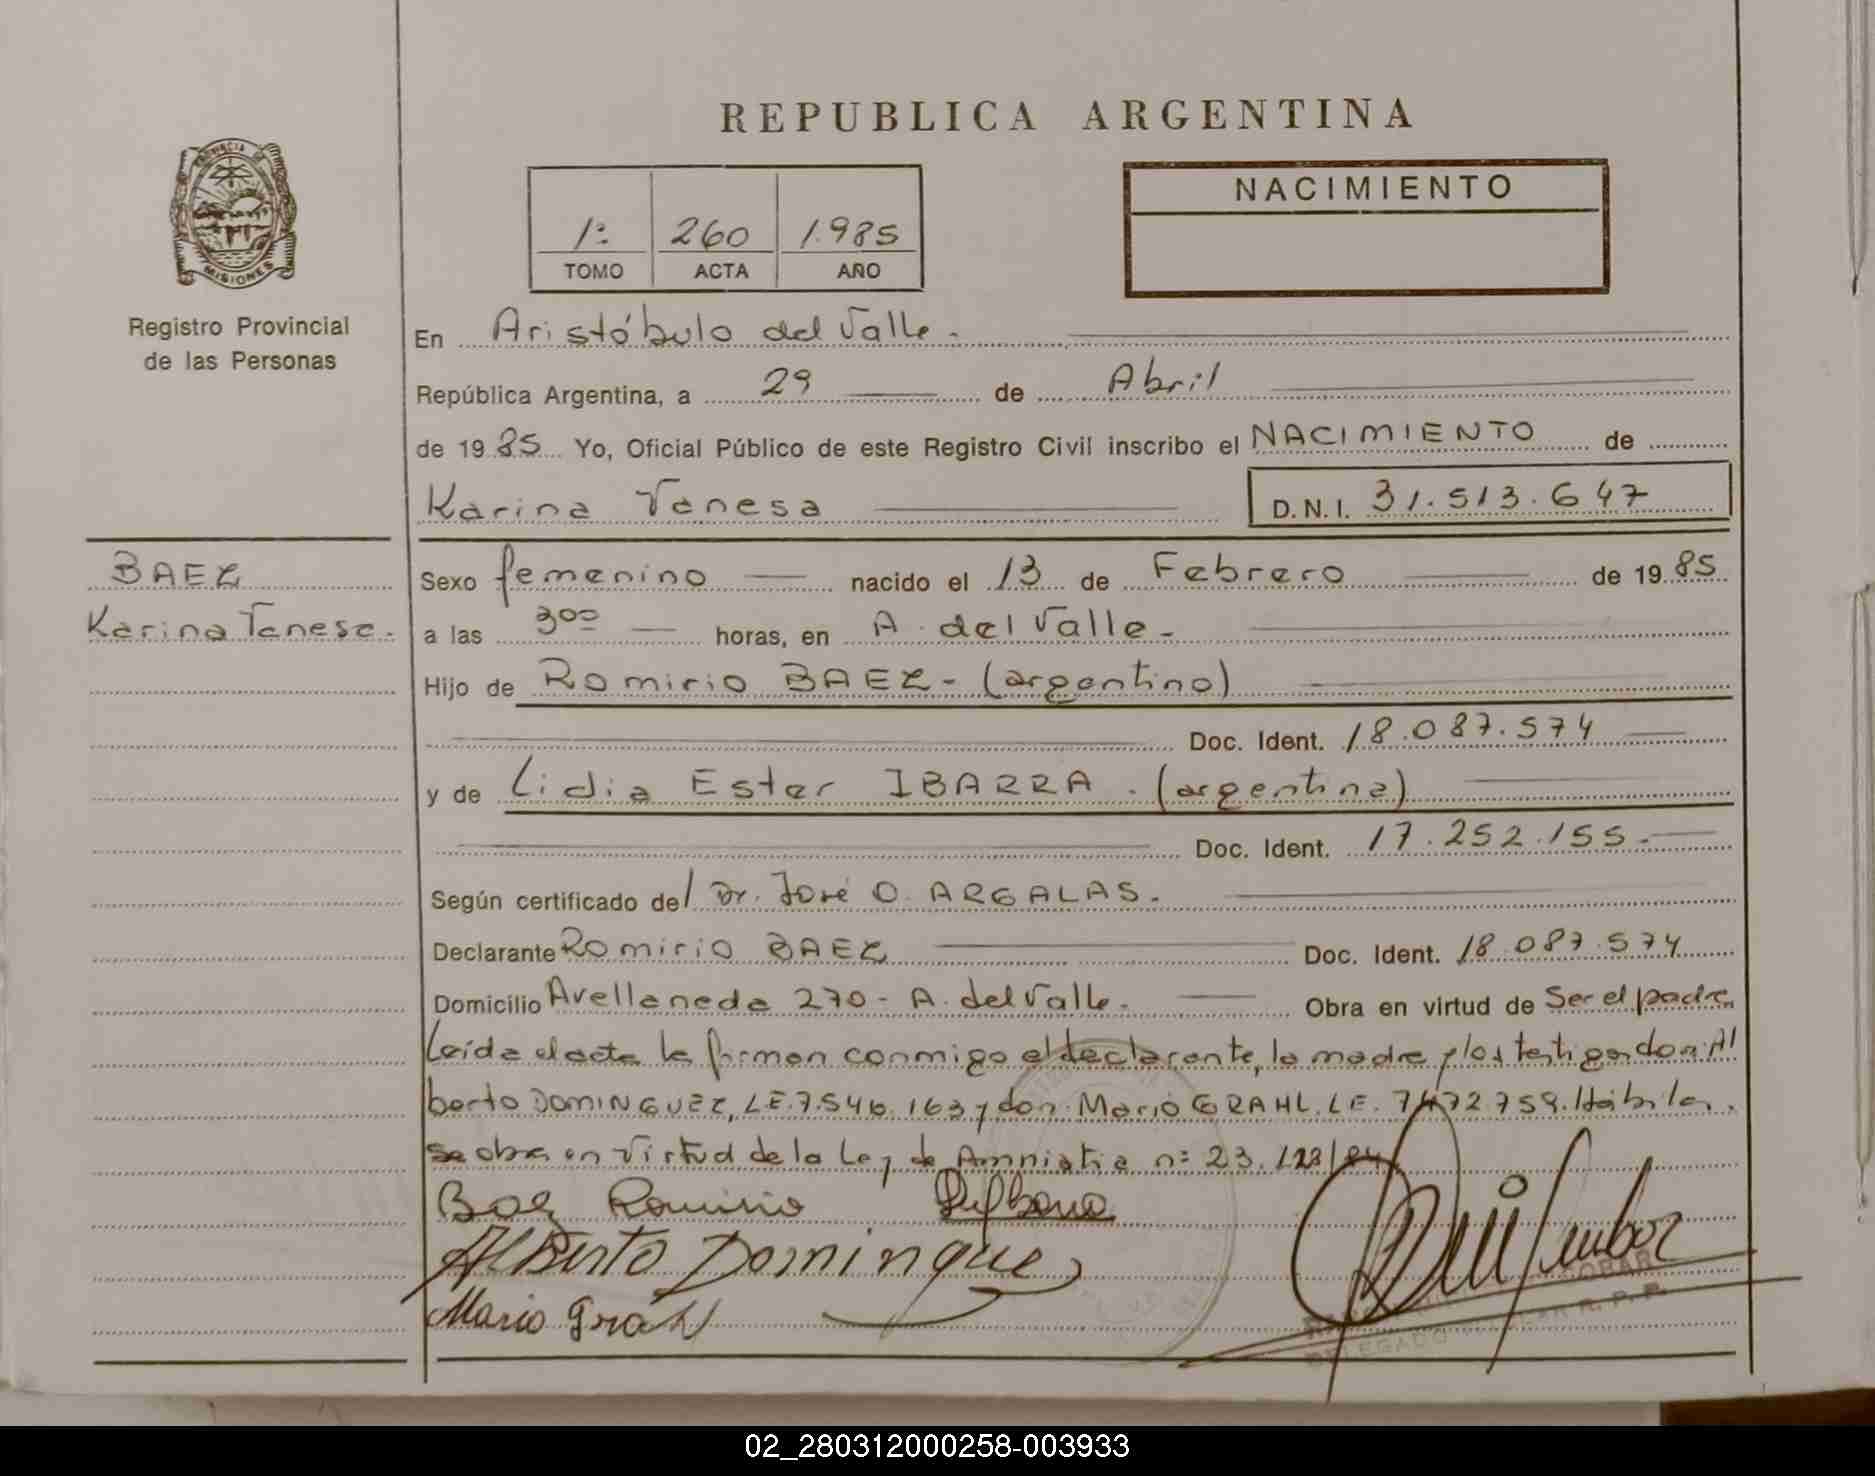 REPUBLICA ARGENTINA
PROVINCIA DE
MISIONES
Registro Provincial
de las Personas
1º 260 1.985
TOMO ACTA AÑO
NACIMIENTO
En Aristóbulo del Valle.
República Argentina, a 29 de Abril
de 1985 Yo, Oficial Público de este Registro Civil inscribo el NACIMIENTO de
Karina Vanesa D.N.I. 31.513.647
BAEZ
Karina Vanesa.
Sexo femenino nacido el 13 de Febrero de 1985
a las 3⁰⁰ horas, en A. del Valle.
Hijo de Romirio BAEZ - (argentino)
Doc. Ident. 18.087.574
y de Lidia Ester IBARRA. (argentina)
Doc. Ident. 17.252.155.
Según certificado del Dr. José O. ARGALAS.
Declarante Romirio BAEZ Doc. Ident. 18.087.574
Domicilio Avellaneda 270 - A. del Valle. Obra en virtud de Ser el padre
Leída el acta la firman conmigo el declarante, la madre y los testigos don: Al
berto DOMINGUEZ, L.E. 7.546.163 y don: Mario GRAHL. L.E. 7.472.759. Hábiles.
se obra en virtud de la Ley de Amnistia nº 23.128/84
Baez Romirio
Alberto Dominguez
Mario Grahl
ESCOBAR
DELEGADO TITULAR R. P. P.
02_280312000258-003933